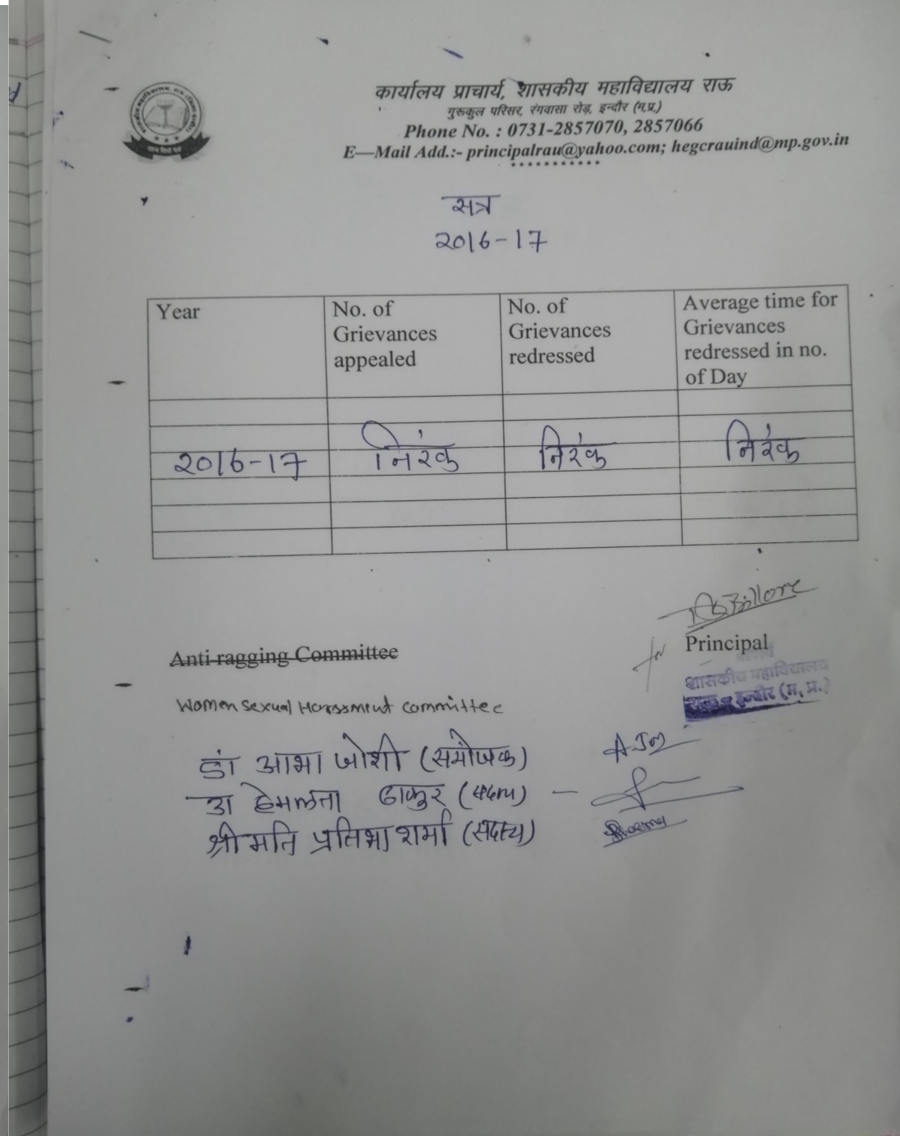 कार्यालय प्राचार्य, शासकीय महाविद्यालय राऊ
गुरूकुल परिसर, रंगवासा रोड़, इन्दौर (म.प्र.)
Phone No. : 0731-2857070, 2857066
E—Mail Add.:- principalrau@yahoo.com; hegcrauind@mp.gov.in
***********
सत्र
2016-17
Year No. of Grievances appealed No. of Grievances redressed Average time for Grievances redressed in no. of Day
2016-17 निरंक निरंक निरंक
for Principal
Anti-ragging Committee
शासकीय महाविद्यालय
राऊ - इन्दौर (म. प्र.)
Women Sexual Harassment Committee
डां आभा जोशी (संयोजक)
डा हेमलता ठाकुर (सदस्य) –
श्रीमति प्रतिभा शर्मा (सदस्य)